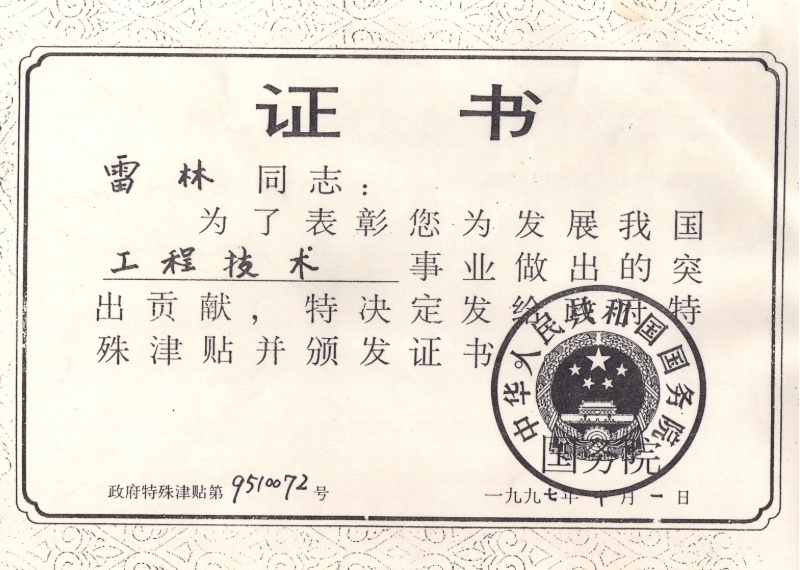 证书
雷林同志：
为了表彰您为发展我国
工程技术事业做出的突
出贡献，特决定发给政府特
殊津贴并颁发证书。
中华人民共和国国务院
国务院
政府特殊津贴第9510072号
一九九七年十月一日